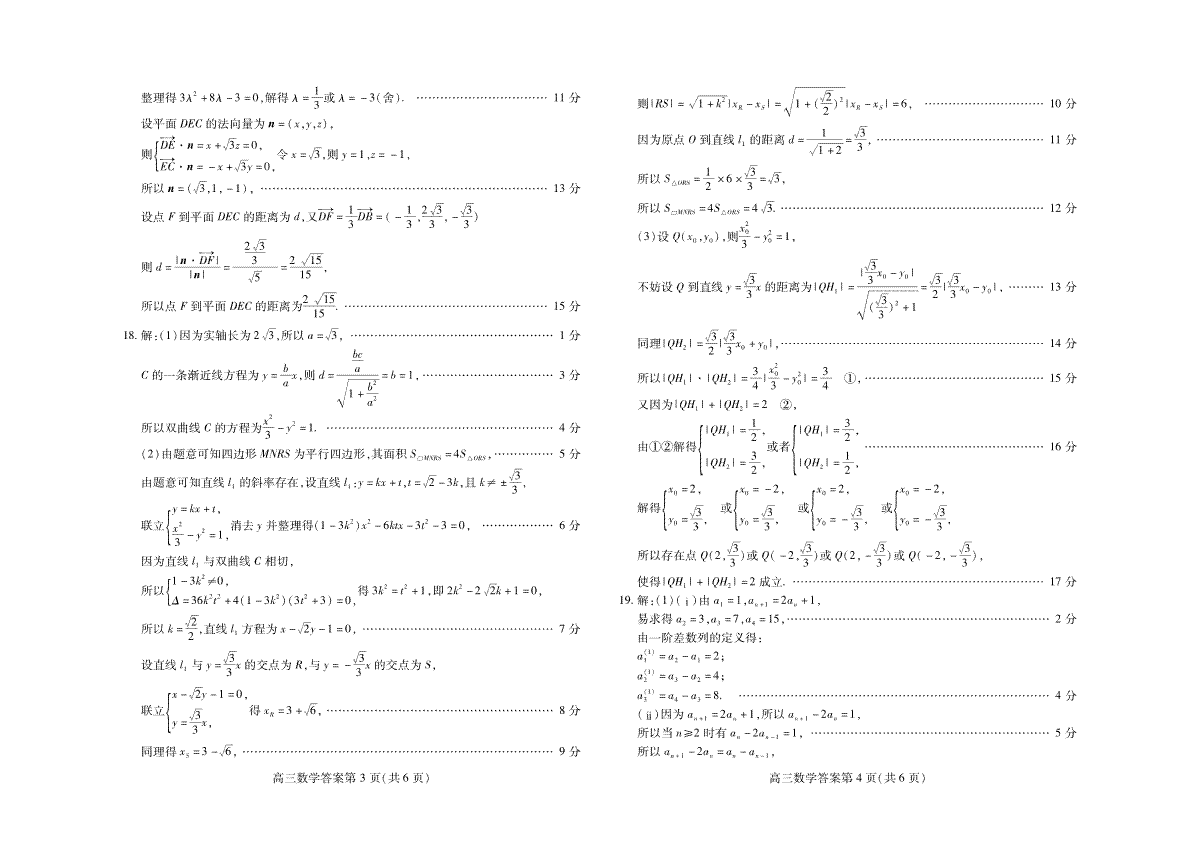 整理得 3λ² + 8λ - 3 = 0, 解得 λ = 1/3 或 λ = -3(舍). ⋯⋯ 11 分
设平面 DEC 的法向量为 n = (x, y, z),
则 { DE→ · n = x + √3z = 0, EC→ · n = -x + √3y = 0, 令 x = √3, 则 y = 1, z = -1,
所以 n = (√3, 1, -1), ⋯⋯ 13 分
设点 F 到平面 DEC 的距离为 d, 又 DF→ = 1/3 DB→ = (-1/3, 2√3/3, -√3/3)
则 d = |n · DF→|/|n| = (2√3/3)/√5 = 2√15/15,
所以点 F 到平面 DEC 的距离为 2√15/15. ⋯⋯ 15 分
18. 解:(1)因为实轴长为 2√3, 所以 a = √3, ⋯⋯ 1 分
C 的一条渐近线方程为 y = b/a x, 则 d = (bc/a)/√(1 + b²/a²) = b = 1, ⋯⋯ 3 分
所以双曲线 C 的方程为 x²/3 - y² = 1. ⋯⋯ 4 分
(2)由题意可知四边形 MNRS 为平行四边形, 其面积 S▱MNRS = 4S△ORS, ⋯⋯ 5 分
由题意可知直线 l₁ 的斜率存在, 设直线 l₁: y = kx + t, t = √2 - 3k, 且 k ≠ ±√3/3,
联立 { y = kx + t, x²/3 - y² = 1, 消去 y 并整理得(1 - 3k²)x² - 6ktx - 3t² - 3 = 0, ⋯⋯ 6 分
因为直线 l₁ 与双曲线 C 相切,
所以 { 1 - 3k² ≠ 0, Δ = 36k²t² + 4(1 - 3k²)(3t² + 3) = 0, 得 3k² = t² + 1, 即 2k² - 2√2k + 1 = 0,
所以 k = √2/2, 直线 l₁ 方程为 x - √2y - 1 = 0, ⋯⋯ 7 分
设直线 l₁ 与 y = √3/3 x 的交点为 R, 与 y = -√3/3 x 的交点为 S,
联立 { x - √2y - 1 = 0, y = √3/3 x, 得 x_R = 3 + √6, ⋯⋯ 8 分
同理得 x_S = 3 - √6, ⋯⋯ 9 分
高三数学答案第 3 页(共 6 页)
则|RS| = √(1 + k²)|x_R - x_S| = √(1 + (√2/2)²)|x_R - x_S| = 6, ⋯⋯ 10 分
因为原点 O 到直线 l₁ 的距离 d = 1/√(1 + 2) = √3/3, ⋯⋯ 11 分
所以 S△ORS = 1/2 × 6 × √3/3 = √3,
所以 S▱MNRS = 4S△ORS = 4√3. ⋯⋯ 12 分
(3)设 Q(x₀, y₀), 则 x₀²/3 - y₀² = 1,
不妨设 Q 到直线 y = √3/3 x 的距离为|QH₁| = |√3/3 x₀ - y₀|/√((√3/3)² + 1) = √3/2 |√3/3 x₀ - y₀|, ⋯⋯ 13 分
同理|QH₂| = √3/2 |√3/3 x₀ + y₀|, ⋯⋯ 14 分
所以|QH₁| · |QH₂| = 3/4 |x₀²/3 - y₀²| = 3/4 ①, ⋯⋯ 15 分
又因为|QH₁| + |QH₂| = 2 ②,
由①②解得 { |QH₁| = 1/2, |QH₂| = 3/2, 或者 { |QH₁| = 3/2, |QH₂| = 1/2, ⋯⋯ 16 分
解得 { x₀ = 2, y₀ = √3/3, 或 { x₀ = -2, y₀ = √3/3, 或 { x₀ = 2, y₀ = -√3/3, 或 { x₀ = -2, y₀ = -√3/3,
所以存在点 Q(2, √3/3)或 Q(-2, √3/3)或 Q(2, -√3/3)或 Q(-2, -√3/3),
使得|QH₁| + |QH₂| = 2 成立. ⋯⋯ 17 分
19. 解:(1)(ⅰ)由 a₁ = 1, aₙ₊₁ = 2aₙ + 1,
易求得 a₂ = 3, a₃ = 7, a₄ = 15, ⋯⋯ 2 分
由一阶差数列的定义得:
a₁⁽¹⁾ = a₂ - a₁ = 2;
a₂⁽¹⁾ = a₃ - a₂ = 4;
a₃⁽¹⁾ = a₄ - a₃ = 8. ⋯⋯ 4 分
(ⅱ)因为 aₙ₊₁ = 2aₙ + 1, 所以 aₙ₊₁ - 2aₙ = 1,
所以当 n ≥ 2 时有 aₙ - 2aₙ₋₁ = 1, ⋯⋯ 5 分
所以 aₙ₊₁ - 2aₙ = aₙ - aₙ₋₁,
高三数学答案第 4 页(共 6 页)